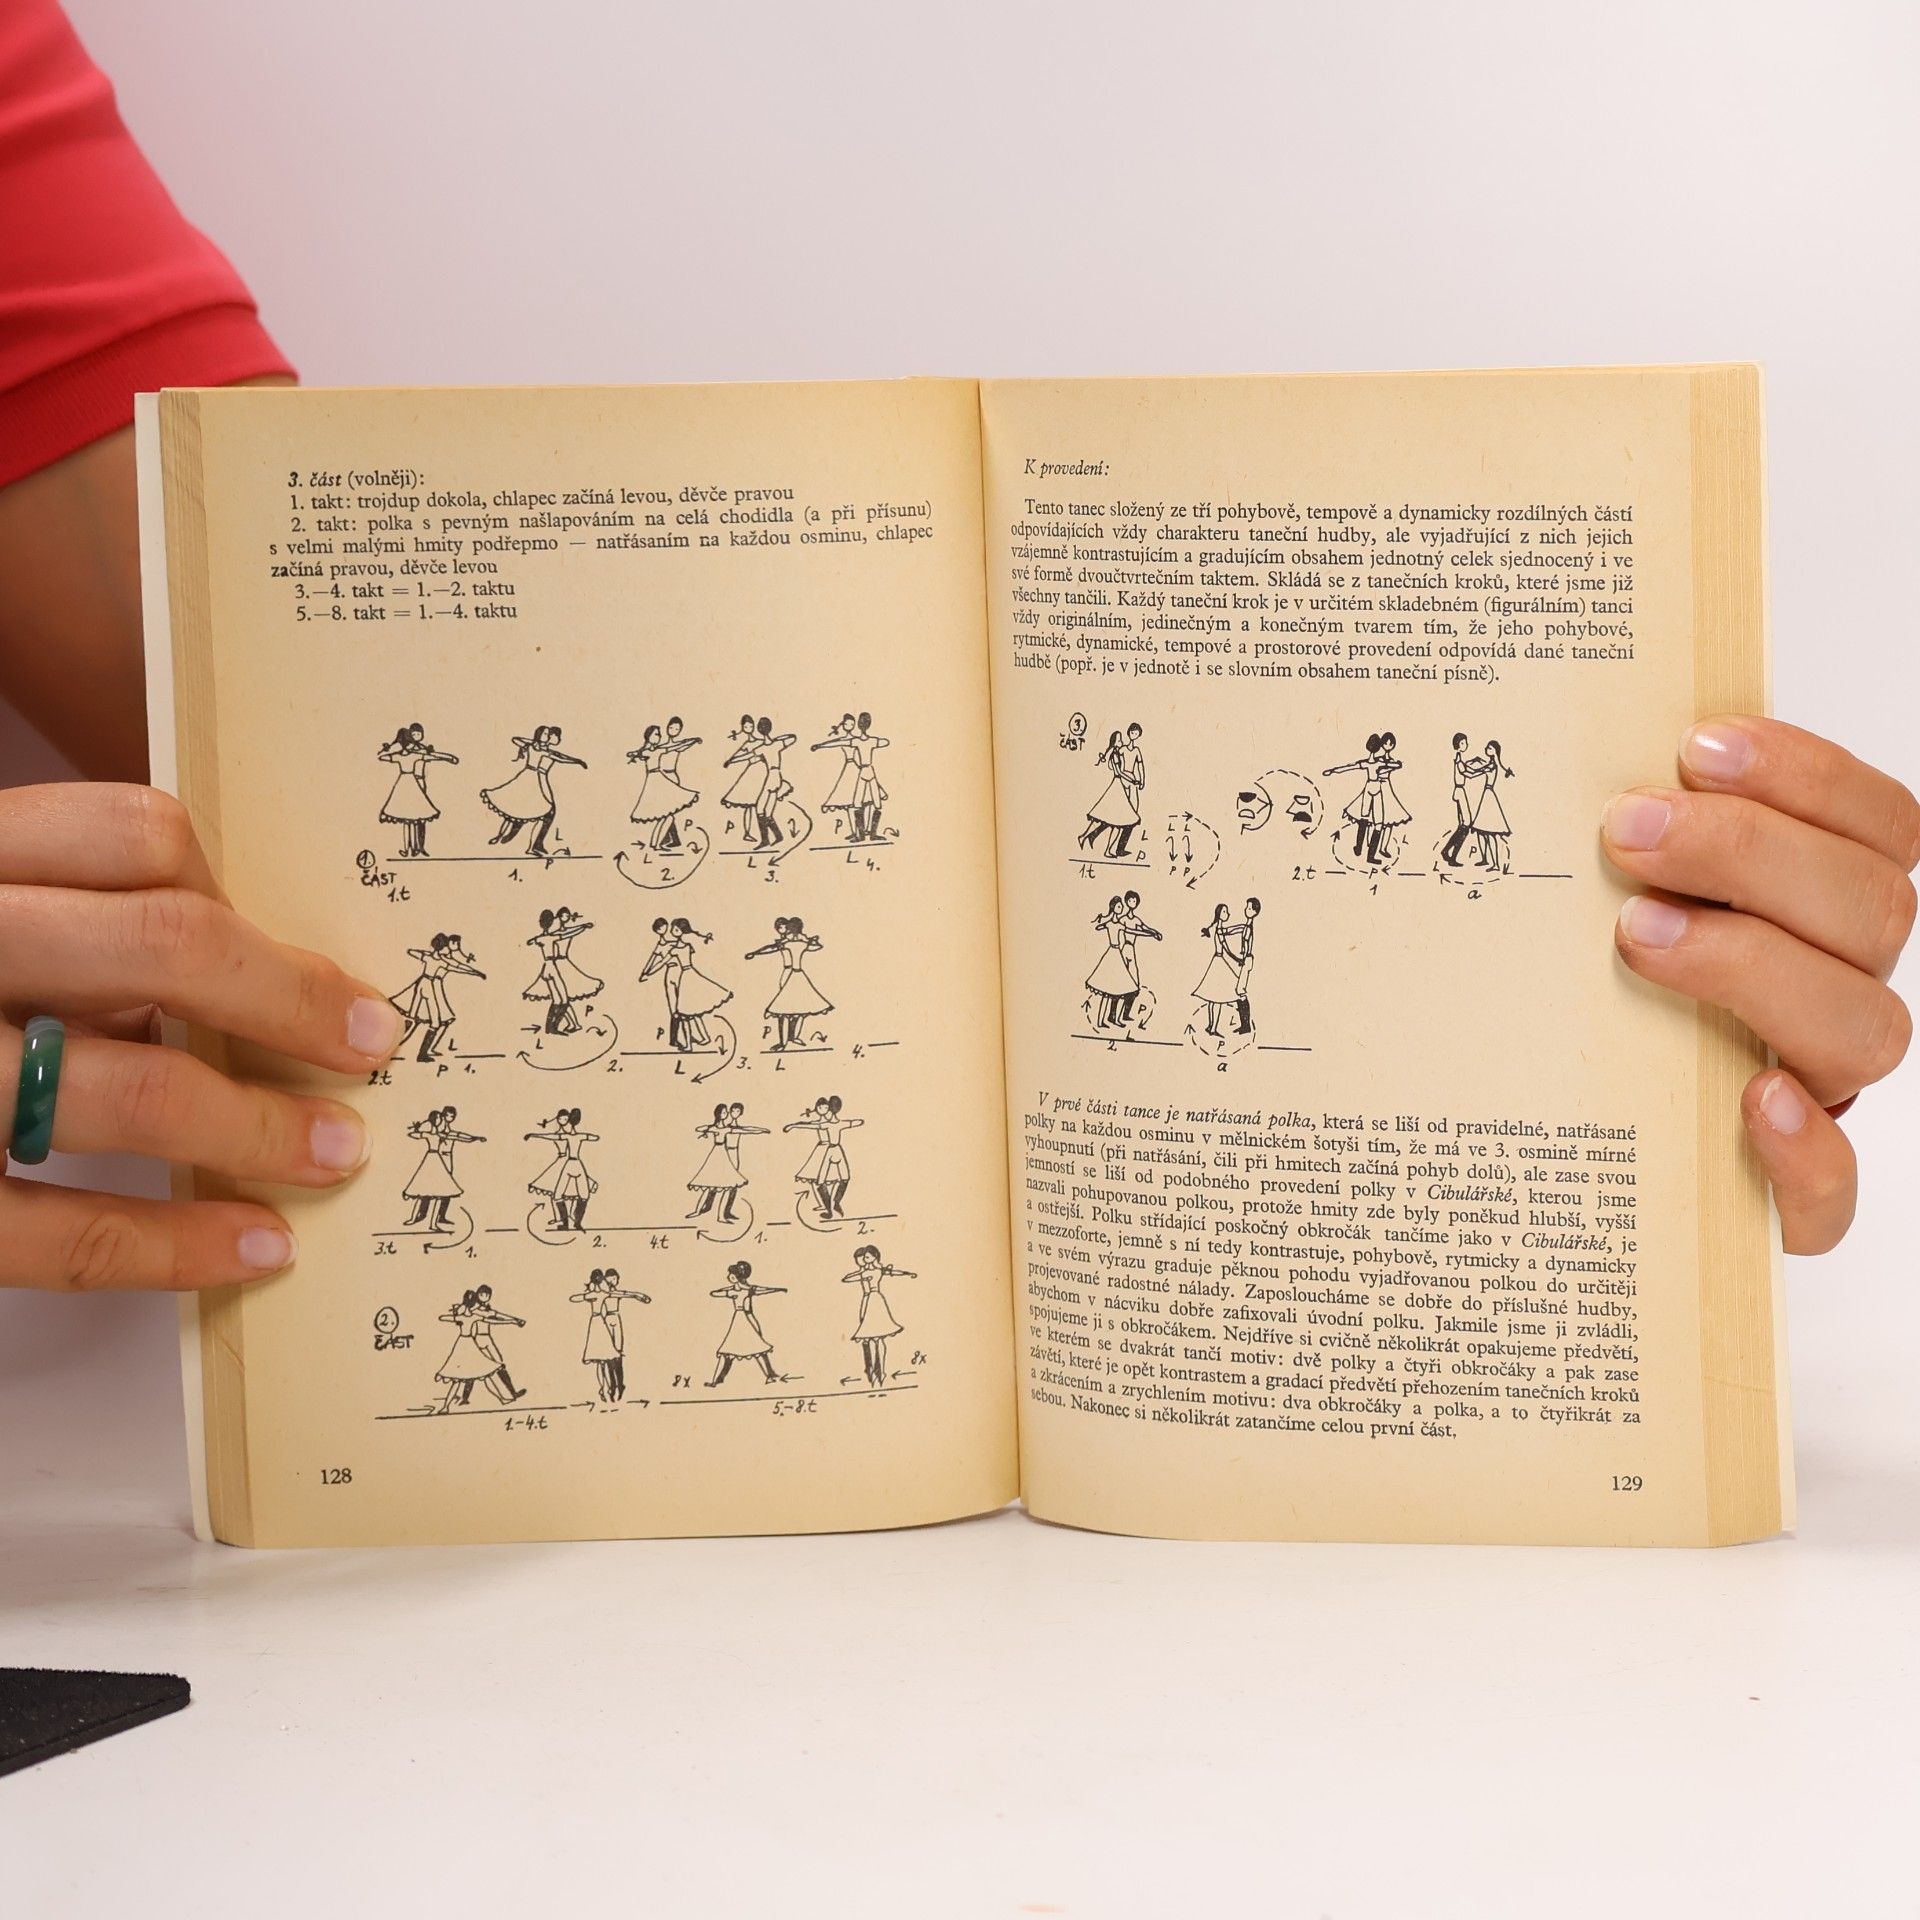 3. část (volněji):
1. takt: trojdup dokola, chlapec začíná levou, děvče pravou
2. takt: polka s pevným našlapováním na celá chodidla (a při přísunu)
s velmi malými hmity podřepmo — natřásaním na každou osminu, chlapec
začíná pravou, děvče levou
3.—4. takt = 1.—2. taktu
5.—8. takt = 1.—4. taktu
L P P P P
1. ČÁST
1.t 1. L 2. L 3. L 4.
L P P P
2.t P 1. L 2. L 3. L 4.
3.t 1. 2. 4.t 1. 2.
2. ČÁST
8x 8x
1.-4.t 5.-8.t
128
K provedení:
Tento tanec složený ze tří pohybově, tempově a dynamicky rozdílných částí
odpovídajících vždy charakteru taneční hudby, ale vyjadřující z nich jejich
vzájemně kontrastujícím a gradujícím obsahem jednotný celek sjednocený i ve
své formě dvoučtvrtečním taktem. Skládá se z tanečních kroků, které jsme již
všechny tančili. Každý taneční krok je v určitém skladebném (figurálním) tanci
vždy originálním, jedinečným a konečným tvarem tím, že jeho pohybové,
rytmické, dynamické, tempové a prostorové provedení odpovídá dané taneční
hudbě (popř. je v jednotě i se slovním obsahem taneční písně).
3 ČÁST
L L L L
P P P P L P
1.t 2.t 1 a
P L
L P
2 a
V prvé části tance je natřásaná polka, která se liší od pravidelné, natřásané
polky na každou osminu v mělnickém šotyši tím, že má ve 3. osmině mírné
vyhoupnutí (při natřásání, čili při hmitech začíná pohyb dolů), ale zase svou
jemností se liší od podobného provedení polky v Cibulářské, kterou jsme
nazvali pohupovanou polkou, protože hmity zde byly poněkud hlubší, vyšší
a ostřejší. Polku střídající poskočný obkročák tančíme jako v Cibulářské, je
v mezzoforte, jemně s ní tedy kontrastuje, pohybově, rytmicky a dynamicky
a ve svém výrazu graduje pěknou pohodu vyjadřovanou polkou do určitěji
projevované radostné nálady. Zaposloucháme se dobře do příslušné hudby,
abychom v nácviku dobře zafixovali úvodní polku. Jakmile jsme ji zvládli,
spojujeme ji s obkročákem. Nejdříve si cvičně několikrát opakujeme předvětí,
ve kterém se dvakrát tančí motiv: dvě polky a čtyři obkročáky a pak zase
závětí, které je opět kontrastem a gradací předvětí přehozením tanečních kroků
a zkrácením a zrychlením motivu: dva obkročáky a polka, a to čtyřikrát za
sebou. Nakonec si několikrát zatančíme celou první část.
129